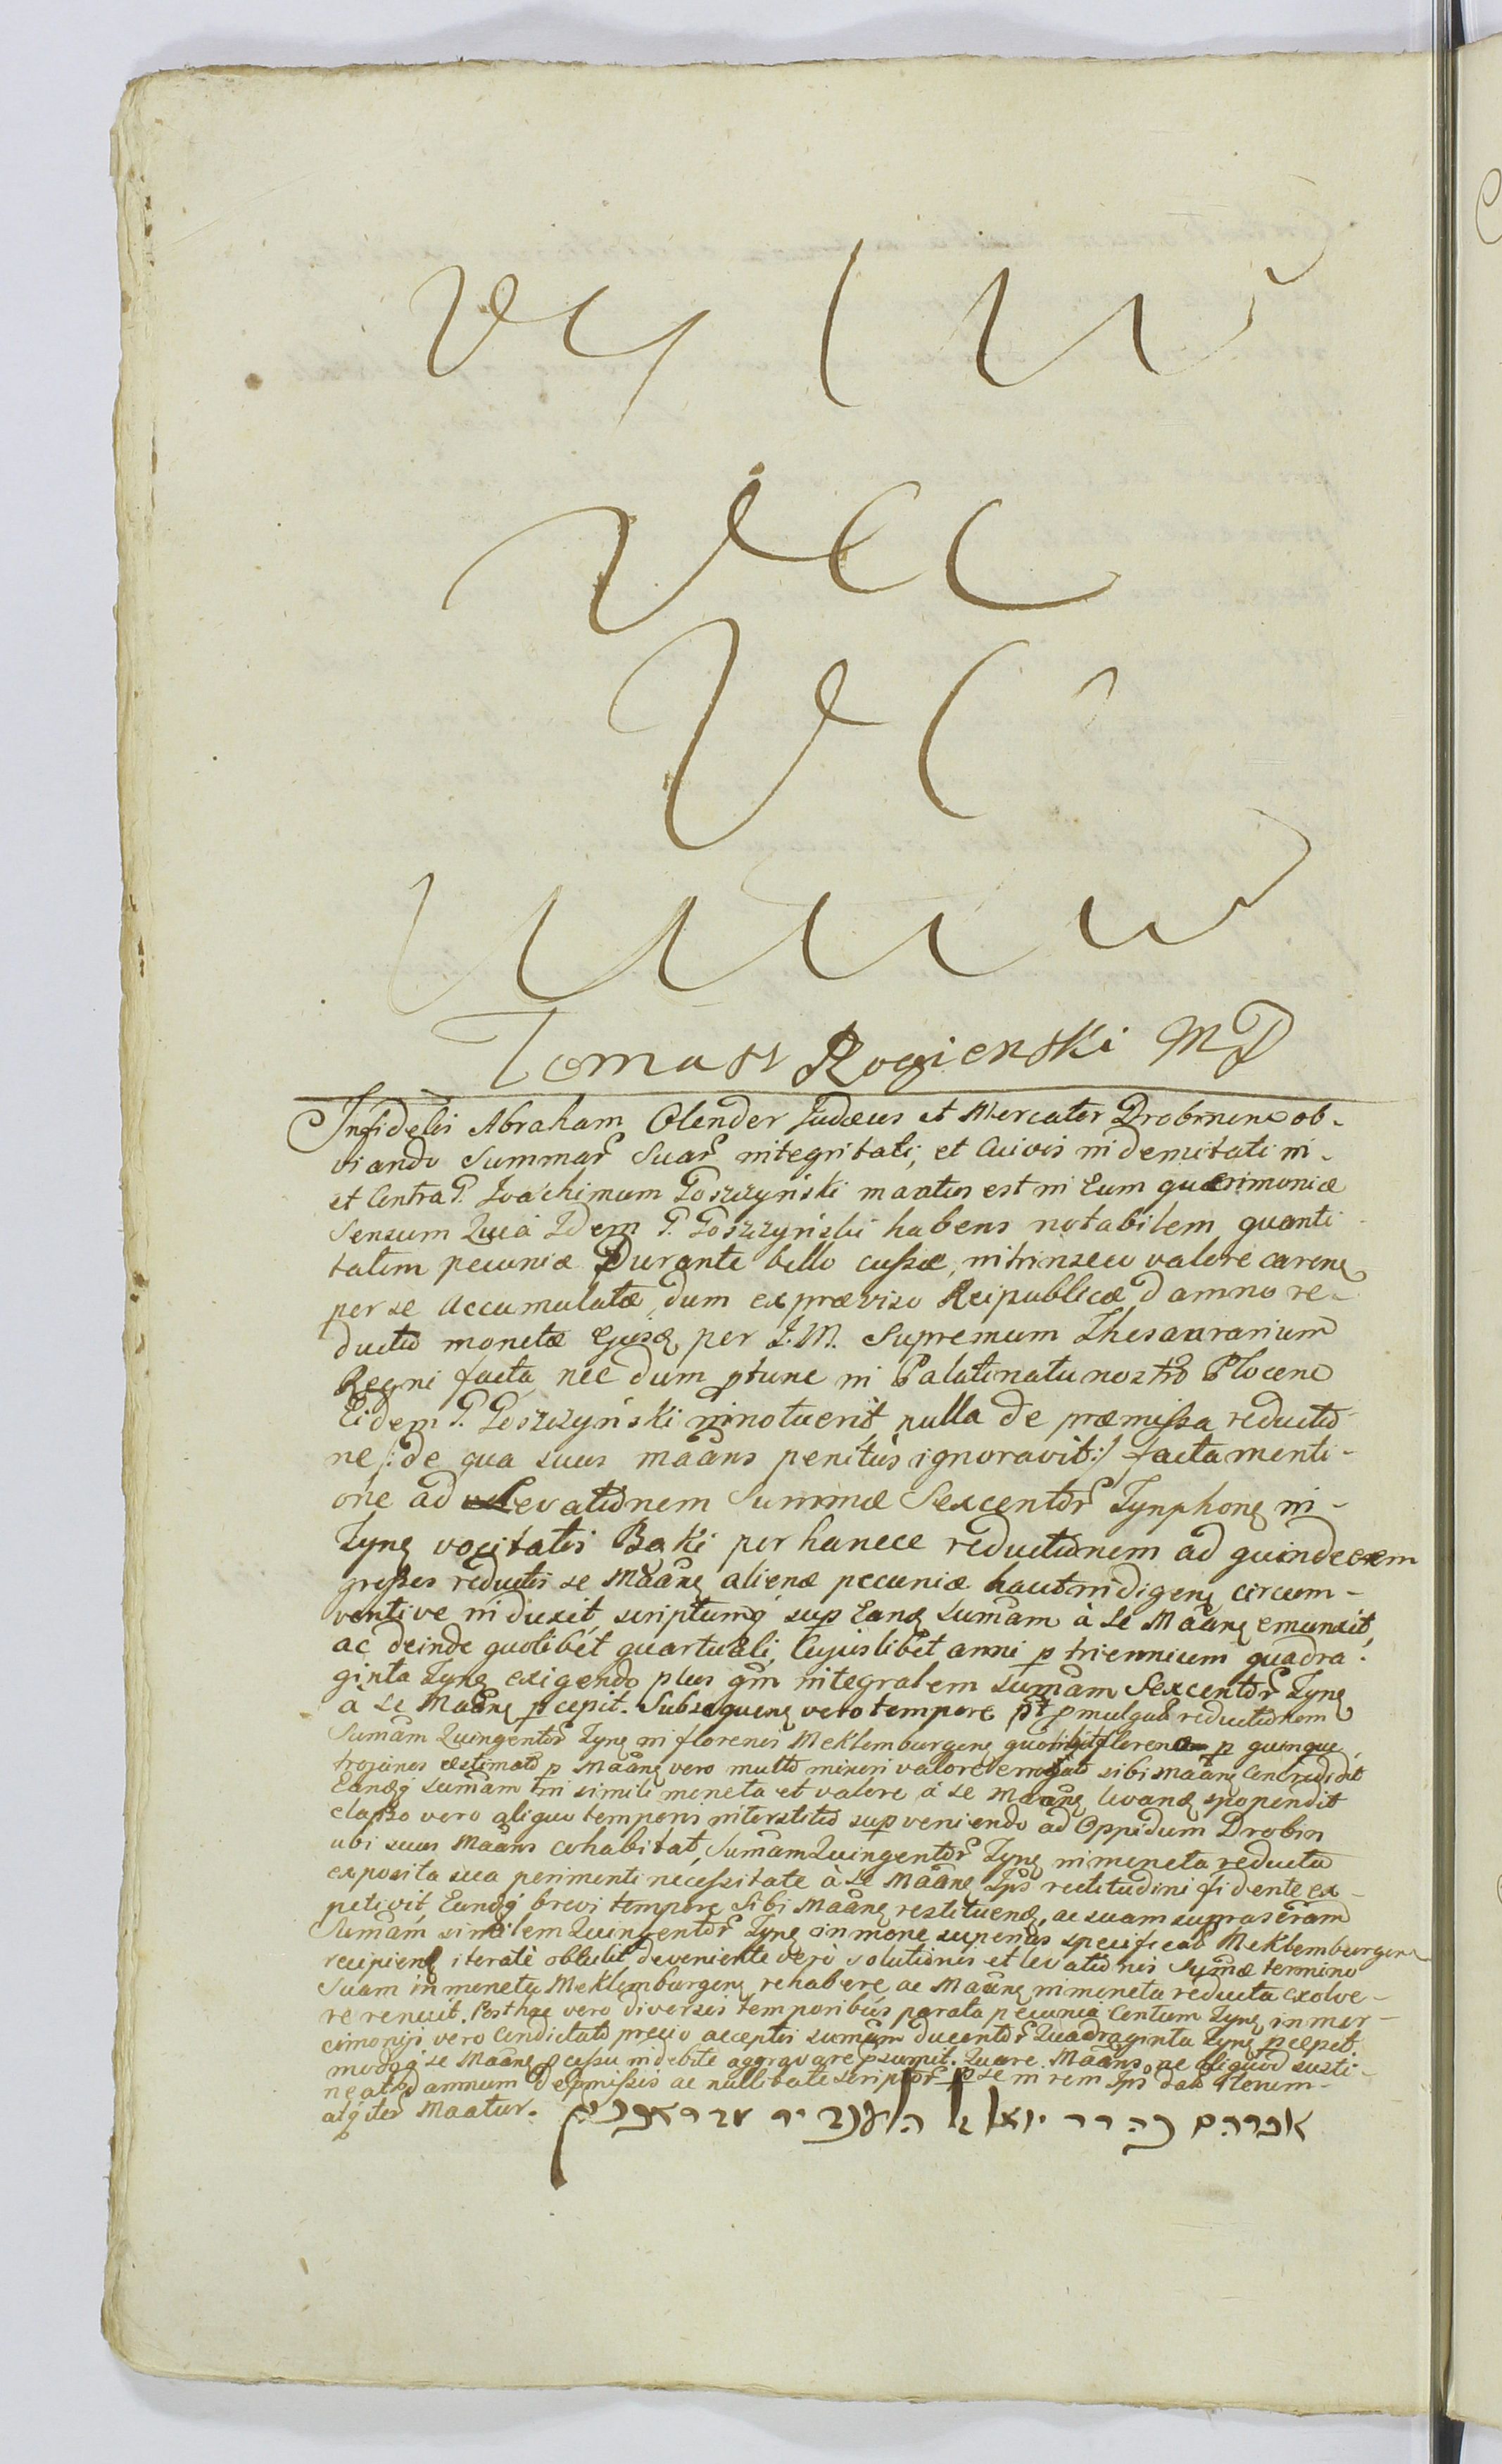 Tomasz Rogienski MP
Infidelis Abraham Olender Judæus et Mercator Drobinen ob-
viando Summar Suar integritati, et Cuivis indemitati in-
et Contra P. Joachimum Goszczyński maatus est in Eum quærimoniæ
Sensum Quia Idem P. Goszczyński habens notabilem quanti
tatem pecuniæ Durante bello cussæ, intrinseco valore caren
per se accumulatæ, dum ex præviso Reipublicæ damno re-
ductio monetæ Ejusd per I.M. Supremum Thesaurarium
Regni facta nec dum ptunc in Palatinatu nostro Plocen
Eidem P. Goszczyński innotuerit, nulla de præmissa reductio-
ne /:de qua suus maans penitus ignoravit:/ facta menti-
one ad levationem Summæ Sexcentor Tynphon in-
Tyn vocitatis Bąki per hancce reductionem ad quindecem
grosses reductis se Maan alienæ pecuniæ haut indigen circum-
ventive induxit, scriptumq sup Eand sumam à se Maan emunxit,
ac deinde quolibet quartuali, Cujuslibet anni p triennium quadra-
ginta Tyn exigendo plus qm integralem sumam Sexcentor Tyn
à se Maan pcepit. Subsequen vero tempore pt pmulgat reductionem
Sumam Quingentor Tyn in florenis Meklemburgen quemlibet floren p quinque
trojanos æstimato p Maan vero multo minori valore erogat sibi Maan Concredidit
Eandq sumam in simili moneta et valore à se Maan levand spopendit
elapso vero aliquo temporis interstitio supveniendo ad Oppidum Drobin
ubi suus Maans cohabitat, Sumam Quingentor Tyn in moneta reducta
exposita sua perimenti necessitate à se Maan Ips rectitudini fidente ex-
petivit, Eandq brevi tempore Sibi Maan restituend, ac suam supraseriam
Sumam similem Quingentor Tyn in mone superius specificat Meklemburgen
recipiend iteratè obtulit deveniente verò solutionis et levationis Sumæ termino
Suam in moneta Meklemburgen rehabere ac Maan in moneta reducta exolve-
re renuit. Posthac vero diversis temporibus parata pecunia Centum Tyn in mer-
cimonijs vero Condictato precio acceptis sumam ducentor Quadraginta Tyn pcepit.
modoq se Maan pcessu indebite aggravare psumit. Quare Maans ne aliquod susti-
neat damnum de pmissis ac nullitate scriptor p se in rem Ips dat iterum-
atq iter Maatur.
אברהם בהרר יואל